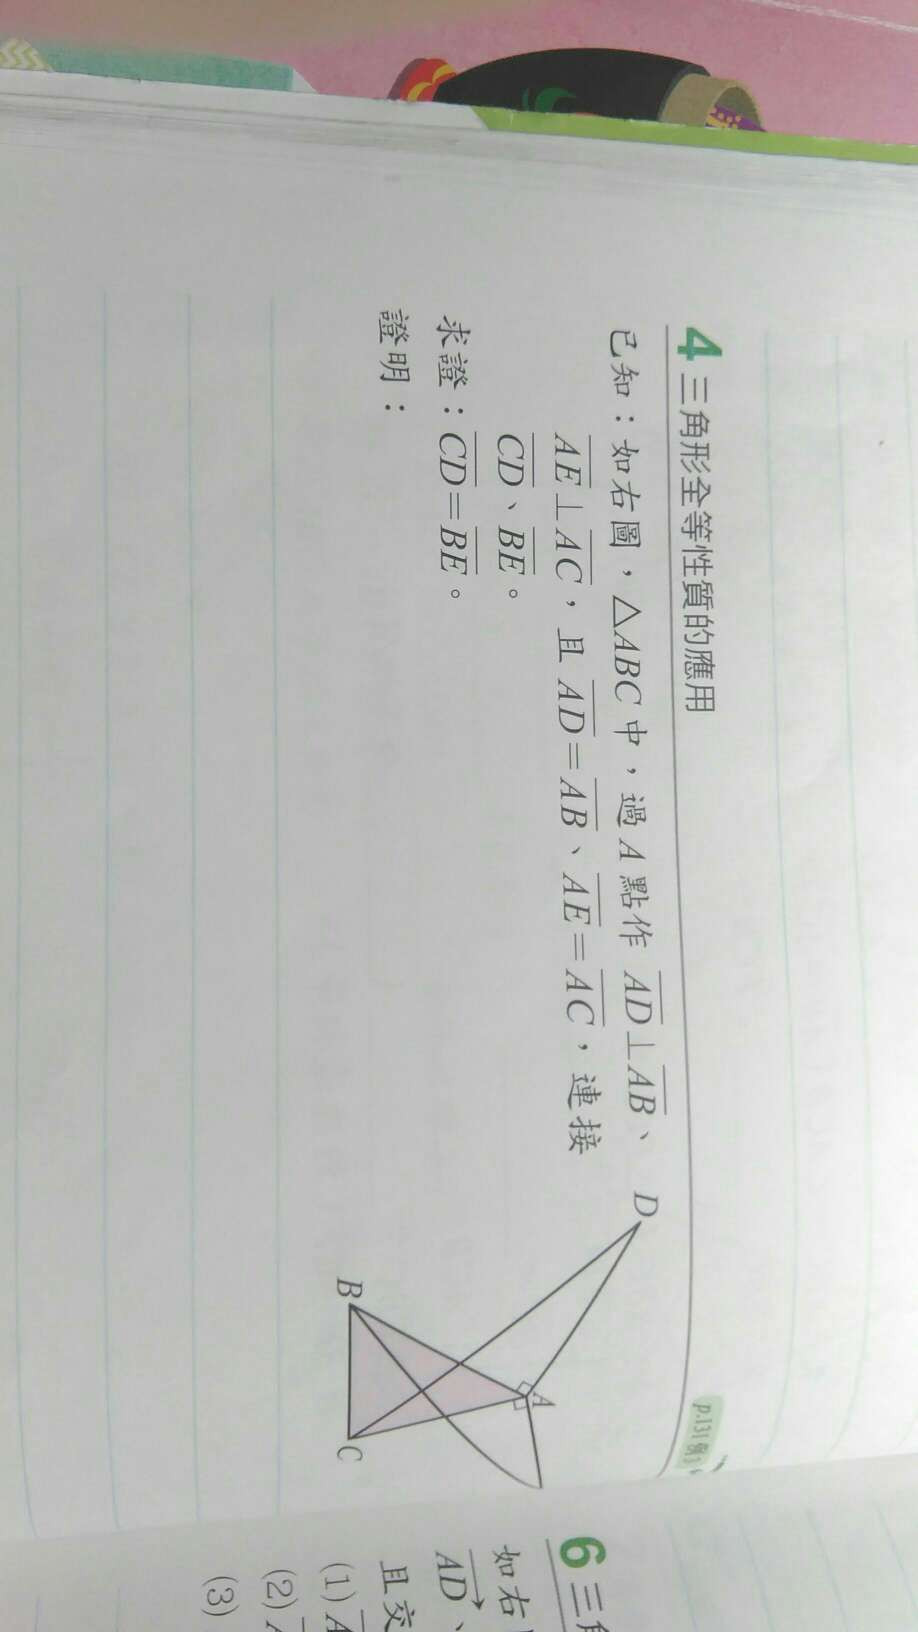 4 三角形全等性質的應用
p.131 例3
已知：如右圖，△ABC 中，過 A 點作 AD⊥AB、
AE⊥AC，且 AD=AB、AE=AC，連接
CD、BE。
求證：CD=BE。
證明：
D
A
B
C
6 三角
如右
AD、
且交
(1)
(2)
(3)